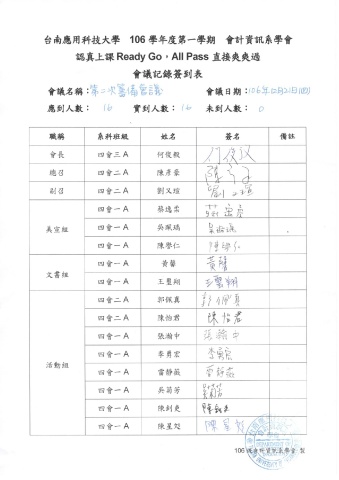 台南應用科技大學 106 學年度第一學期 會計資訊系學會
認真上課 Ready Go，All Pass 直接爽爽過
會議記錄簽到表
會議名稱：第二次籌備會議 會議日期：106年12月21日(四)
應到人數：16 實到人數：16 未到人數：0
職稱 系科班級 姓名 簽名 備註
會長 四會三 A 何俊毅 何俊毅
總召 四會二 A 陳彥豪
副召 四會二 A 劉又瑄 劉又瑄
美宣組 四會一 A 蔡逸霈
四會一 A 吳珮瑀
四會一 A 陳學仁 陳學仁
文書組 四會一 A 黃馨 黃馨
四會一 A 王璽翔 王璽翔
活動組 四會二 A 郭佩真 郭佩真
四會二 A 陳怡君 陳怡君
四會一 A 張瀚中 張瀚中
四會一 A 李勇宏 李勇宏
四會一 A 雷靜薇
四會一 A 吳菊芳 吳菊芳
四會一 A 陳劍爽
四會一 A 陳星彣 陳星彣
106 級會計資訊系學會 製